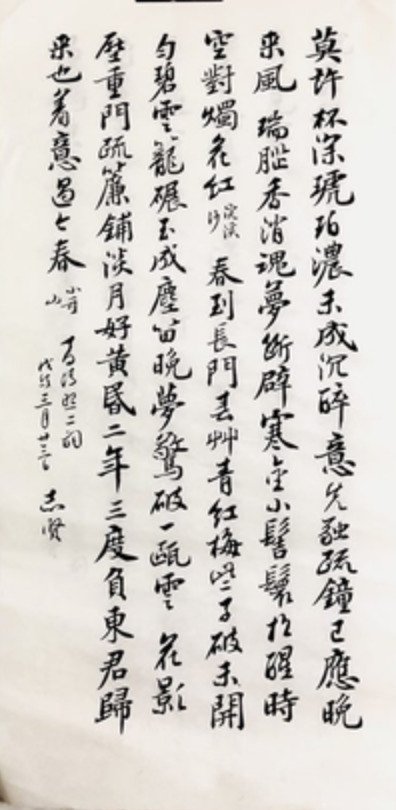 莫許杯深琥珀濃未成沉醉意先融疏鐘已應晚
來風 瑞腦香消魂夢斷辟寒金小髻鬟松醒時
空對燭花紅 浣溪沙 春到長門春艸青紅梅些子破未開
勻碧雲籠碾玉成塵留晚夢驚破一甌雲 花影
壓重門疏簾鋪淡月好黃昏二年三度負東君歸
來也着意過今春 小重山 右清照二詞
戊戌三月廿三日 志賢